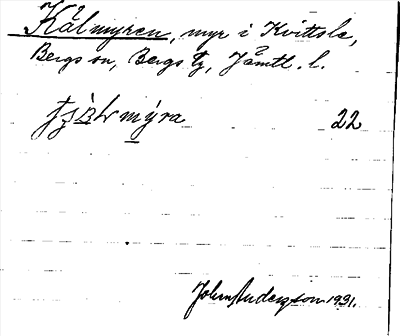 Kålmyren, myr i Kvittsle,
Bergs sn, Bergs tg, Jämtl. l.
22
John Anderzon 1931.